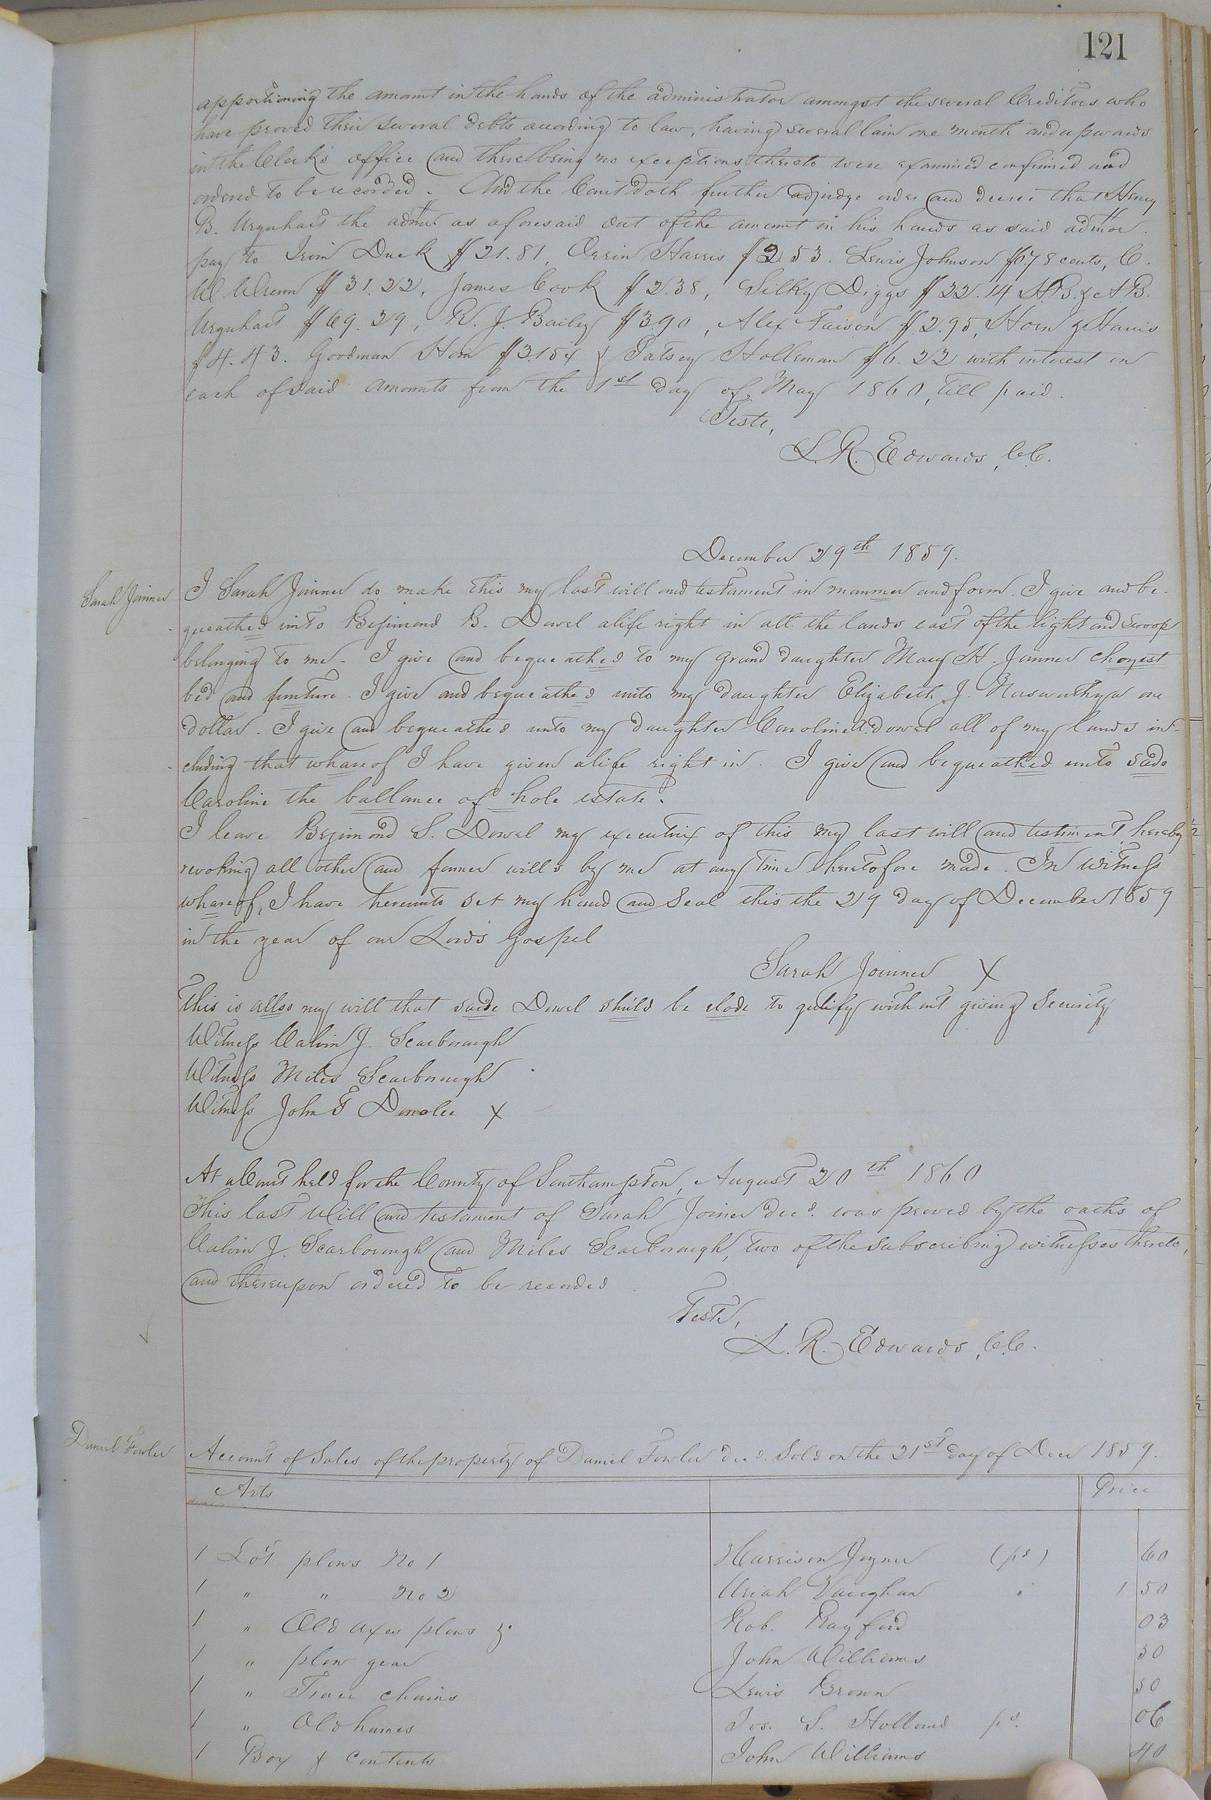 121
apportioning the amount in the hands of the administrator amongst the several Creditors who
have proved their several debts according to law, having several lain one month and upwards
in the Clerk's office and there being no exceptions thereto were examined confirmed and
ordered to be recorded. And the Court doth further adjudge order and decree that Henry
B. Urquhart the admor as aforesaid out of the amount in his hands as said admor
pay to Irvin Duck $21.81, Orrin Harris $2.53. Lewis Johnson $ 78 cents, C.
W. Wrenn $31.22, James Cook $2.38, Silky Diggs $22.14 H.B. & A.B.
Urquhart $69.29, R. J. Bailey $3.90, Alex Faison $2.95, Horn & Harris
$4.43. Goodman Horn $31.54 & Patsey Holleman $6.22 with interest on
each of said amounts from the 1st day of May 1860, till paid.
Teste,
L. R. Edwards, C.C.
December 29th 1859.
Sarah Joinner
I Sarah Joinner do make this my last will and testament in manner and form. I give and be-
queathed unto B. Dowel a life right in all the lands east of the light and swoop
belonging to me. I give and bequeathed to my grand daughter Mary H. Joinner choyest
bed and furniture. I give and bequeathed unto my daughter Elizabeth J. one
dollar. I give and bequeathed unto my daughter Caroline Dowel all of my lands in-
cluding that whareof I have given a life right in. I give and bequeathed unto sade
Caroline the ballance of hole estate.
I leave S. Dowel my executrix of this my last will and testiment hereby
revoking all other and former wills by me at any time heretofore made. In witness
whareof, I have hereunto set my hand and seal this the 29 day of December 1859
in the year of our Lords Gospel
Sarah Joinner X
This is allso my will that saide Dowel shuld be elode to qulify without giving security
Witness Calvin J. Scarborough
Witness Miles Scarborough
Witness John T X
At a Court held for the County of Southampton, August 20th 1860
This last Will and testament of Sarah Joiner decd. was proved by the oaths of
Calvin J. Scarborough and Miles Scarborough, two of the subscribing witnesses thereto,
and thereupon ordered to be recorded
Teste,
L. R. Edwards, C.C.
Daniel Fowler
Account of Sales of the property of Daniel Fowler decd. Sold on the 21st day of Decr 1859.
Arts Price
1 Lot plows No 1 Harrison Joyner (pd) 60
1 " " No 2 Uriah Vaughan " 1 50
1 " Old axes plows &c Rob. Rayford 03
1 " plow gear John Williams 50
1 " Trace chains Lewis Brown 50
1 " Old hames Jos. S. Holland pd. 06
1 Box & contents John Williams 40